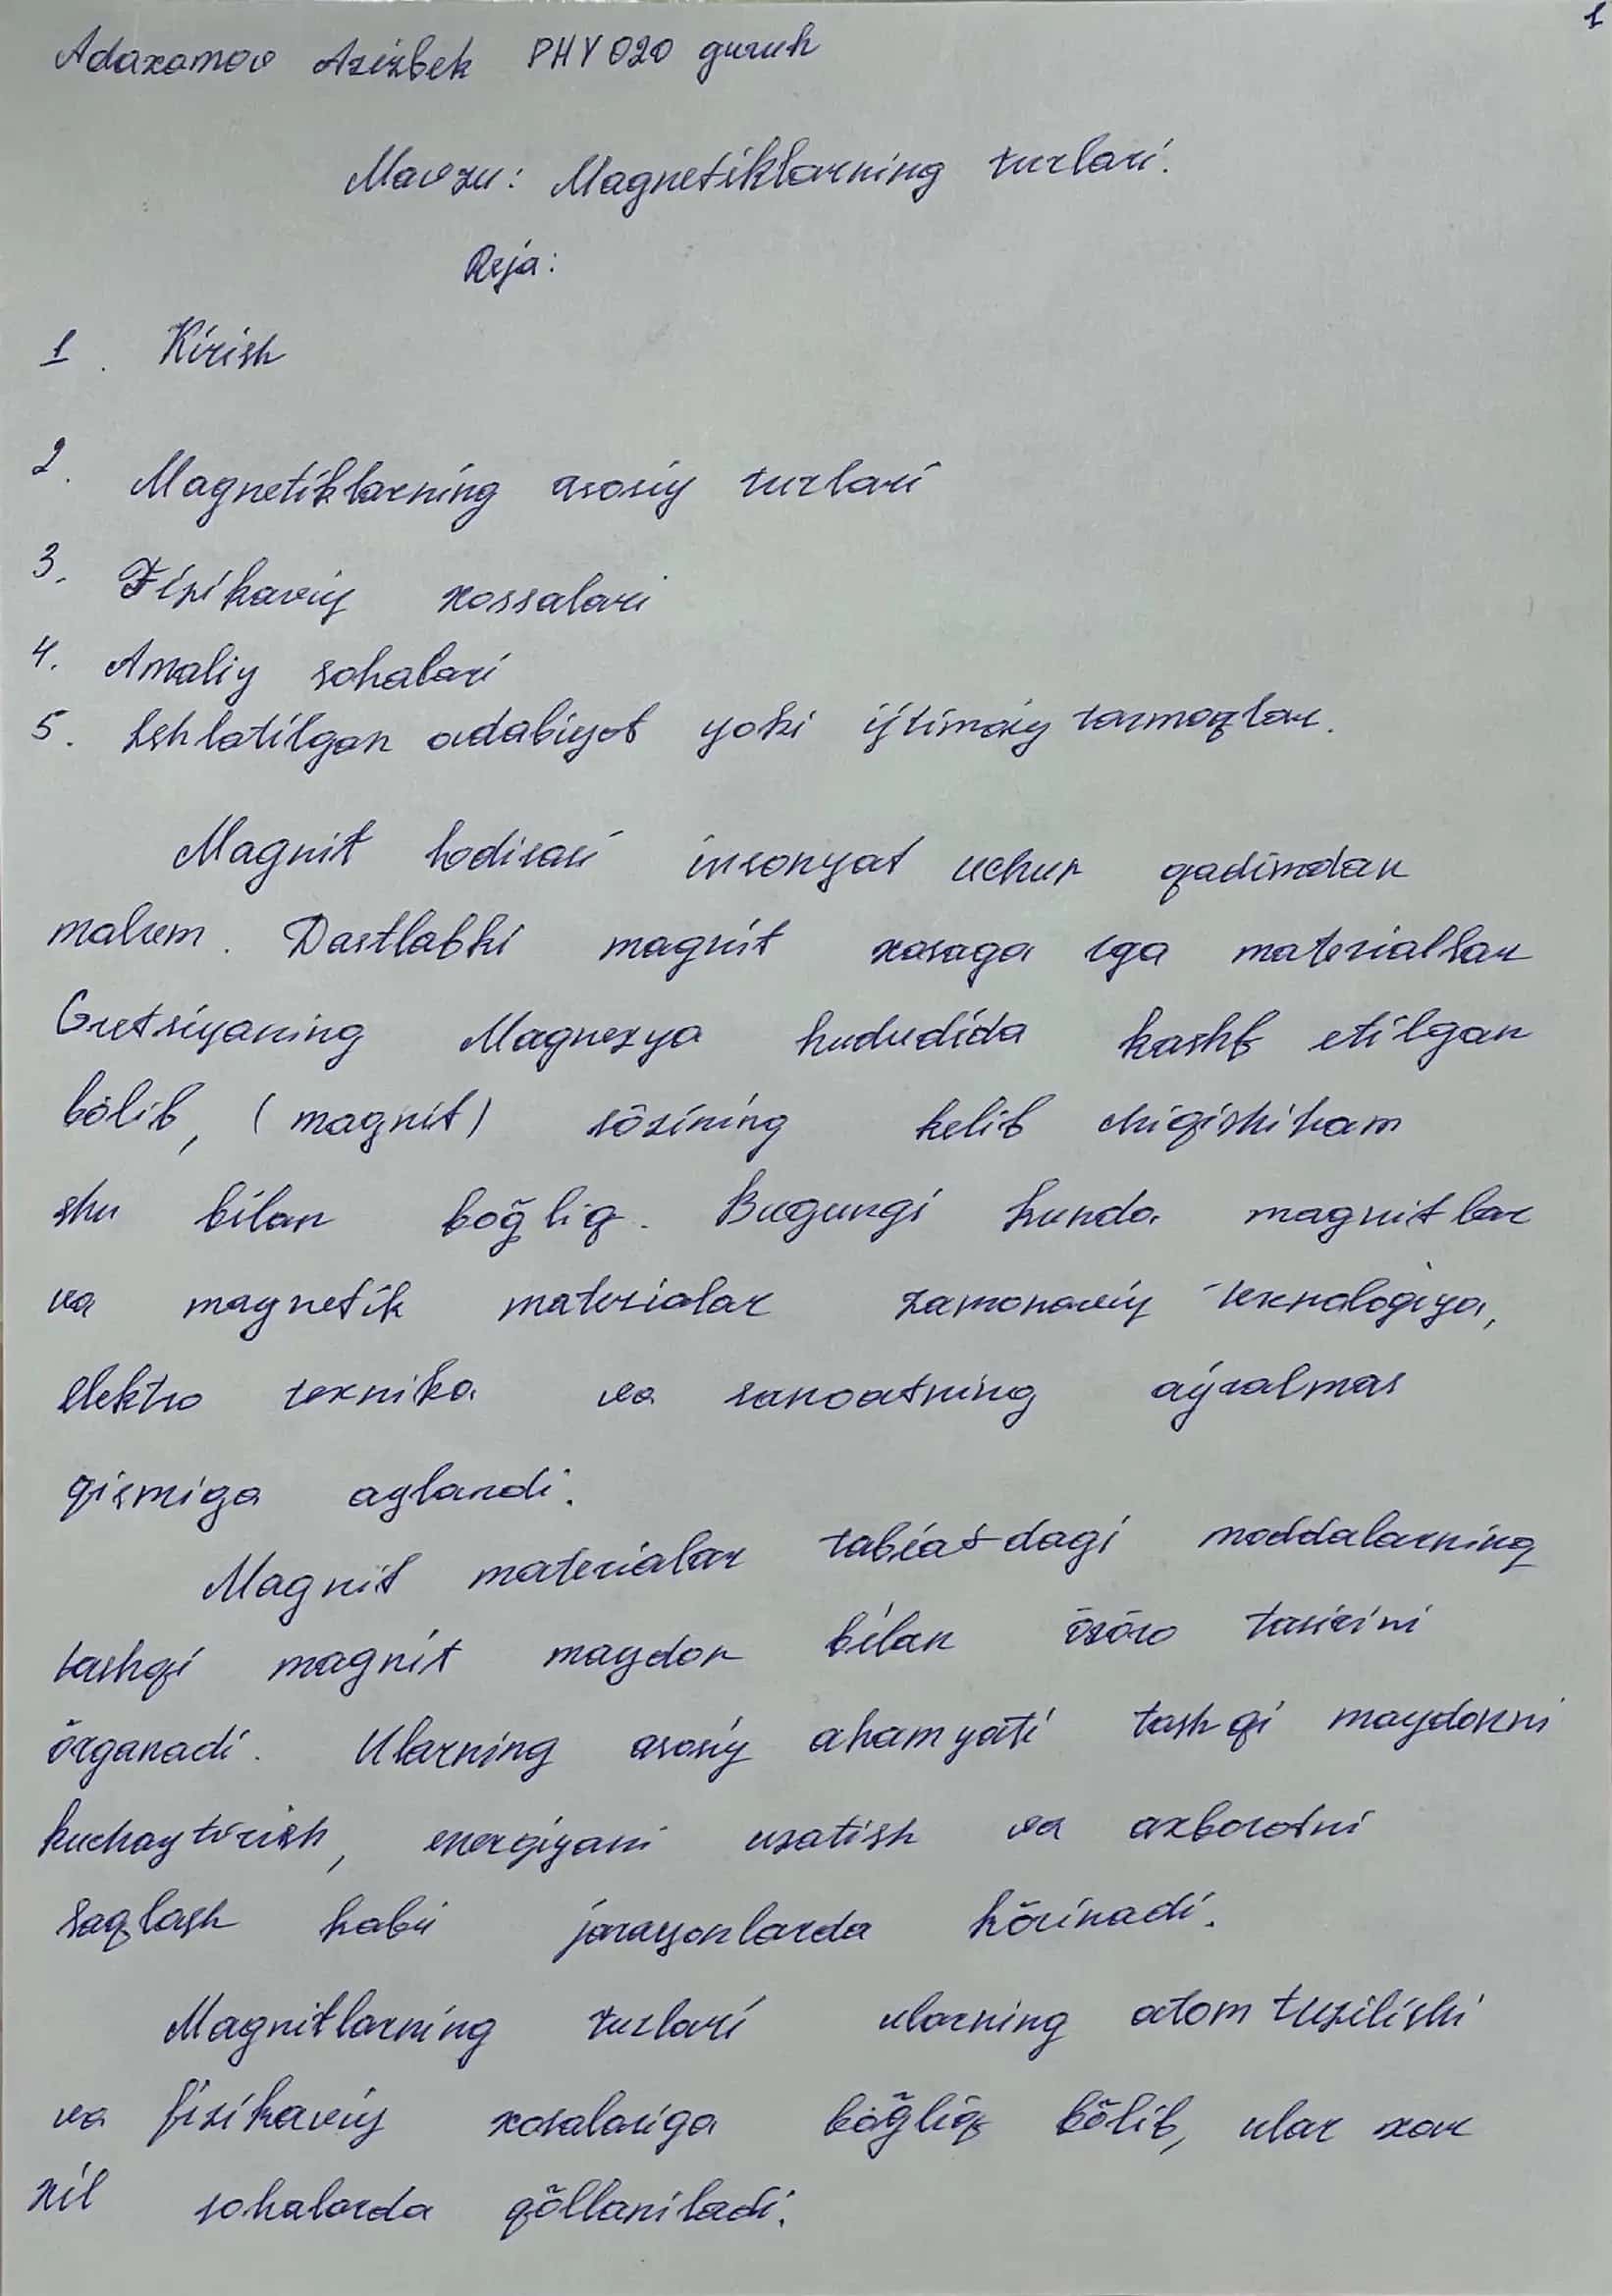 1
Adaxamov Azizbek PHY020 guruh
Mavzu: Magnetiklarning turlari.
Reja:
1. Kirish
2. Magnetiklarning asosiy turlari
3. Fizikaviy xossalari
4. Amaliy sohalari
5. Ishlatilgan adabiyot yoki ijtimoiy tarmoqlar.
Magnit hodisasi insonyat uchun qadimdan
malum. Dastlabki magnit xasaga ega materiallar
Gretsiyaning Magnezya hududida kashf etilgan
bölib, (magnit) sözining kelib chiqishiham
shu bilan boğliq. Bugungi kunda magnitlar
va magnetik materialar zamonaviy texnalogiya,
elektro texnika va sanoatning ajralmas
qismiga aylandi.
Magnit materialar tabiatdagi moddalarning
tashqi magnit maydon bilan özöro tasirini
örganadi. Ularning asosiy ahamyati tashqi maydonni
kuchaytirish, energiyani uzatish va axborotni
saqlash kabi jarayonlarda körinadi.
Magnitlarning turlari ularning atom tuzilishi
va fizikaviy xosalariga boğliq bölib, ular xar
xil sohalarda qöllaniladi.